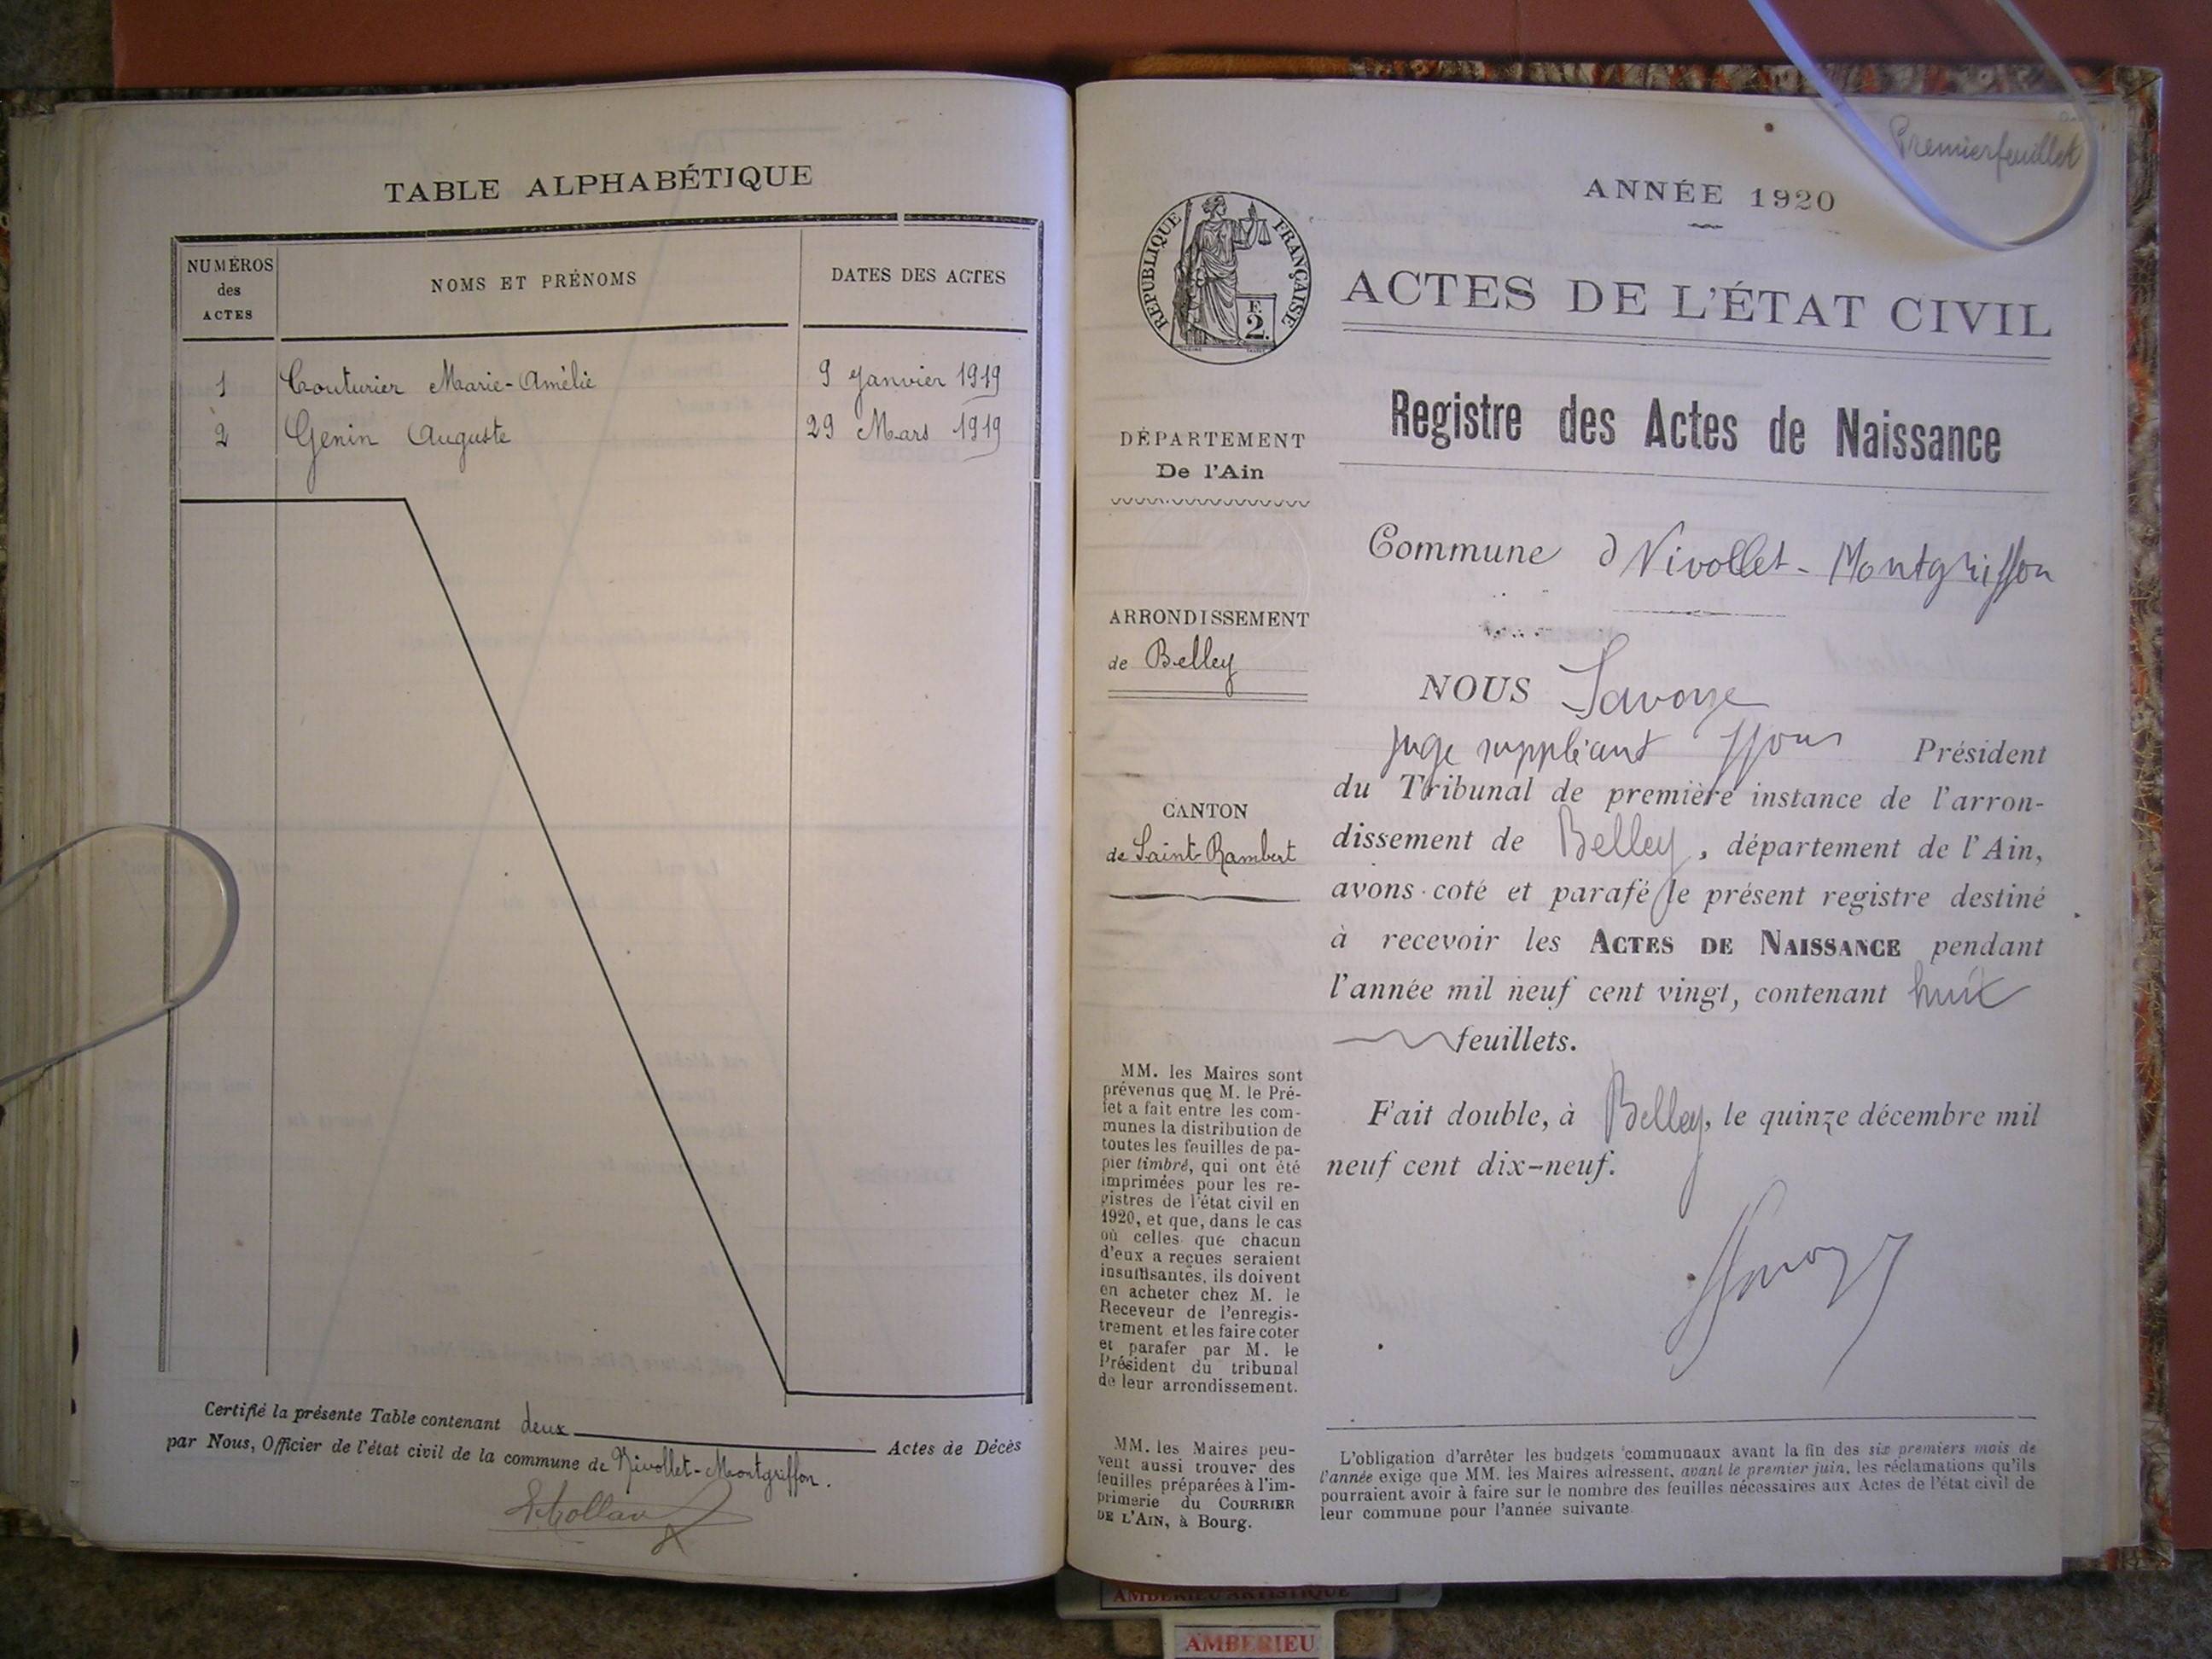 TABLE ALPHABÉTIQUE
NUMÉROS
des
ACTES
NOMS ET PRÉNOMS
DATES DES ACTES
1 Couturier Marie-Amélie 9 Janvier 1919
2 Genin Auguste 29 Mars 1919
Certifié la présente Table contenant deux Actes de Décès
par Nous, Officier de l'état civil de la commune de Nivollet-Montgriffon.
Premier feuillet
RÉPUBLIQUE FRANÇAISE
E
2.
DÉPARTEMENT
De l'Ain
ARRONDISSEMENT
de Belley
CANTON
de Saint-Rambert
MM. les Maires sont
prévenus que M. le Pré-
fet a fait entre les com-
munes la distribution de
toutes les feuilles de pa-
pier timbré, qui ont été
imprimées pour les re-
gistres de l'état civil en
1920, et que, dans le cas
où celles que chacun
d'eux a reçues seraient
insuffisantes, ils doivent
en acheter chez M. le
Receveur de l'enregis-
trement et les faire coter
et parafer par M. le
Président du tribunal
de leur arrondissement.
MM. les Maires peu-
vent aussi trouver des
feuilles préparées à l'im-
primerie du COURRIER
DE L'AIN, à Bourg.
ANNÉE 1920
ACTES DE L'ÉTAT CIVIL
Registre des Actes de Naissance
Commune d Nivollet-Montgriffon
NOUS Savoye
Juge suppléant Président
du Tribunal de première instance de l'arron-
dissement de Belley, département de l'Ain,
avons coté et parafé le présent registre destiné
à recevoir les ACTES DE NAISSANCE pendant
l'année mil neuf cent vingt, contenant huit
feuillets.
Fait double, à Belley, le quinze décembre mil
neuf cent dix-neuf.
L'obligation d'arrêter les budgets communaux avant la fin des six premiers mois de
l'année exige que MM. les Maires adressent, avant le premier juin, les réclamations qu'ils
pourraient avoir à faire sur le nombre des feuilles nécessaires aux Actes de l'état civil de
leur commune pour l'année suivante.
AMBERIEU ARTISTIQUE
AMBERIEU